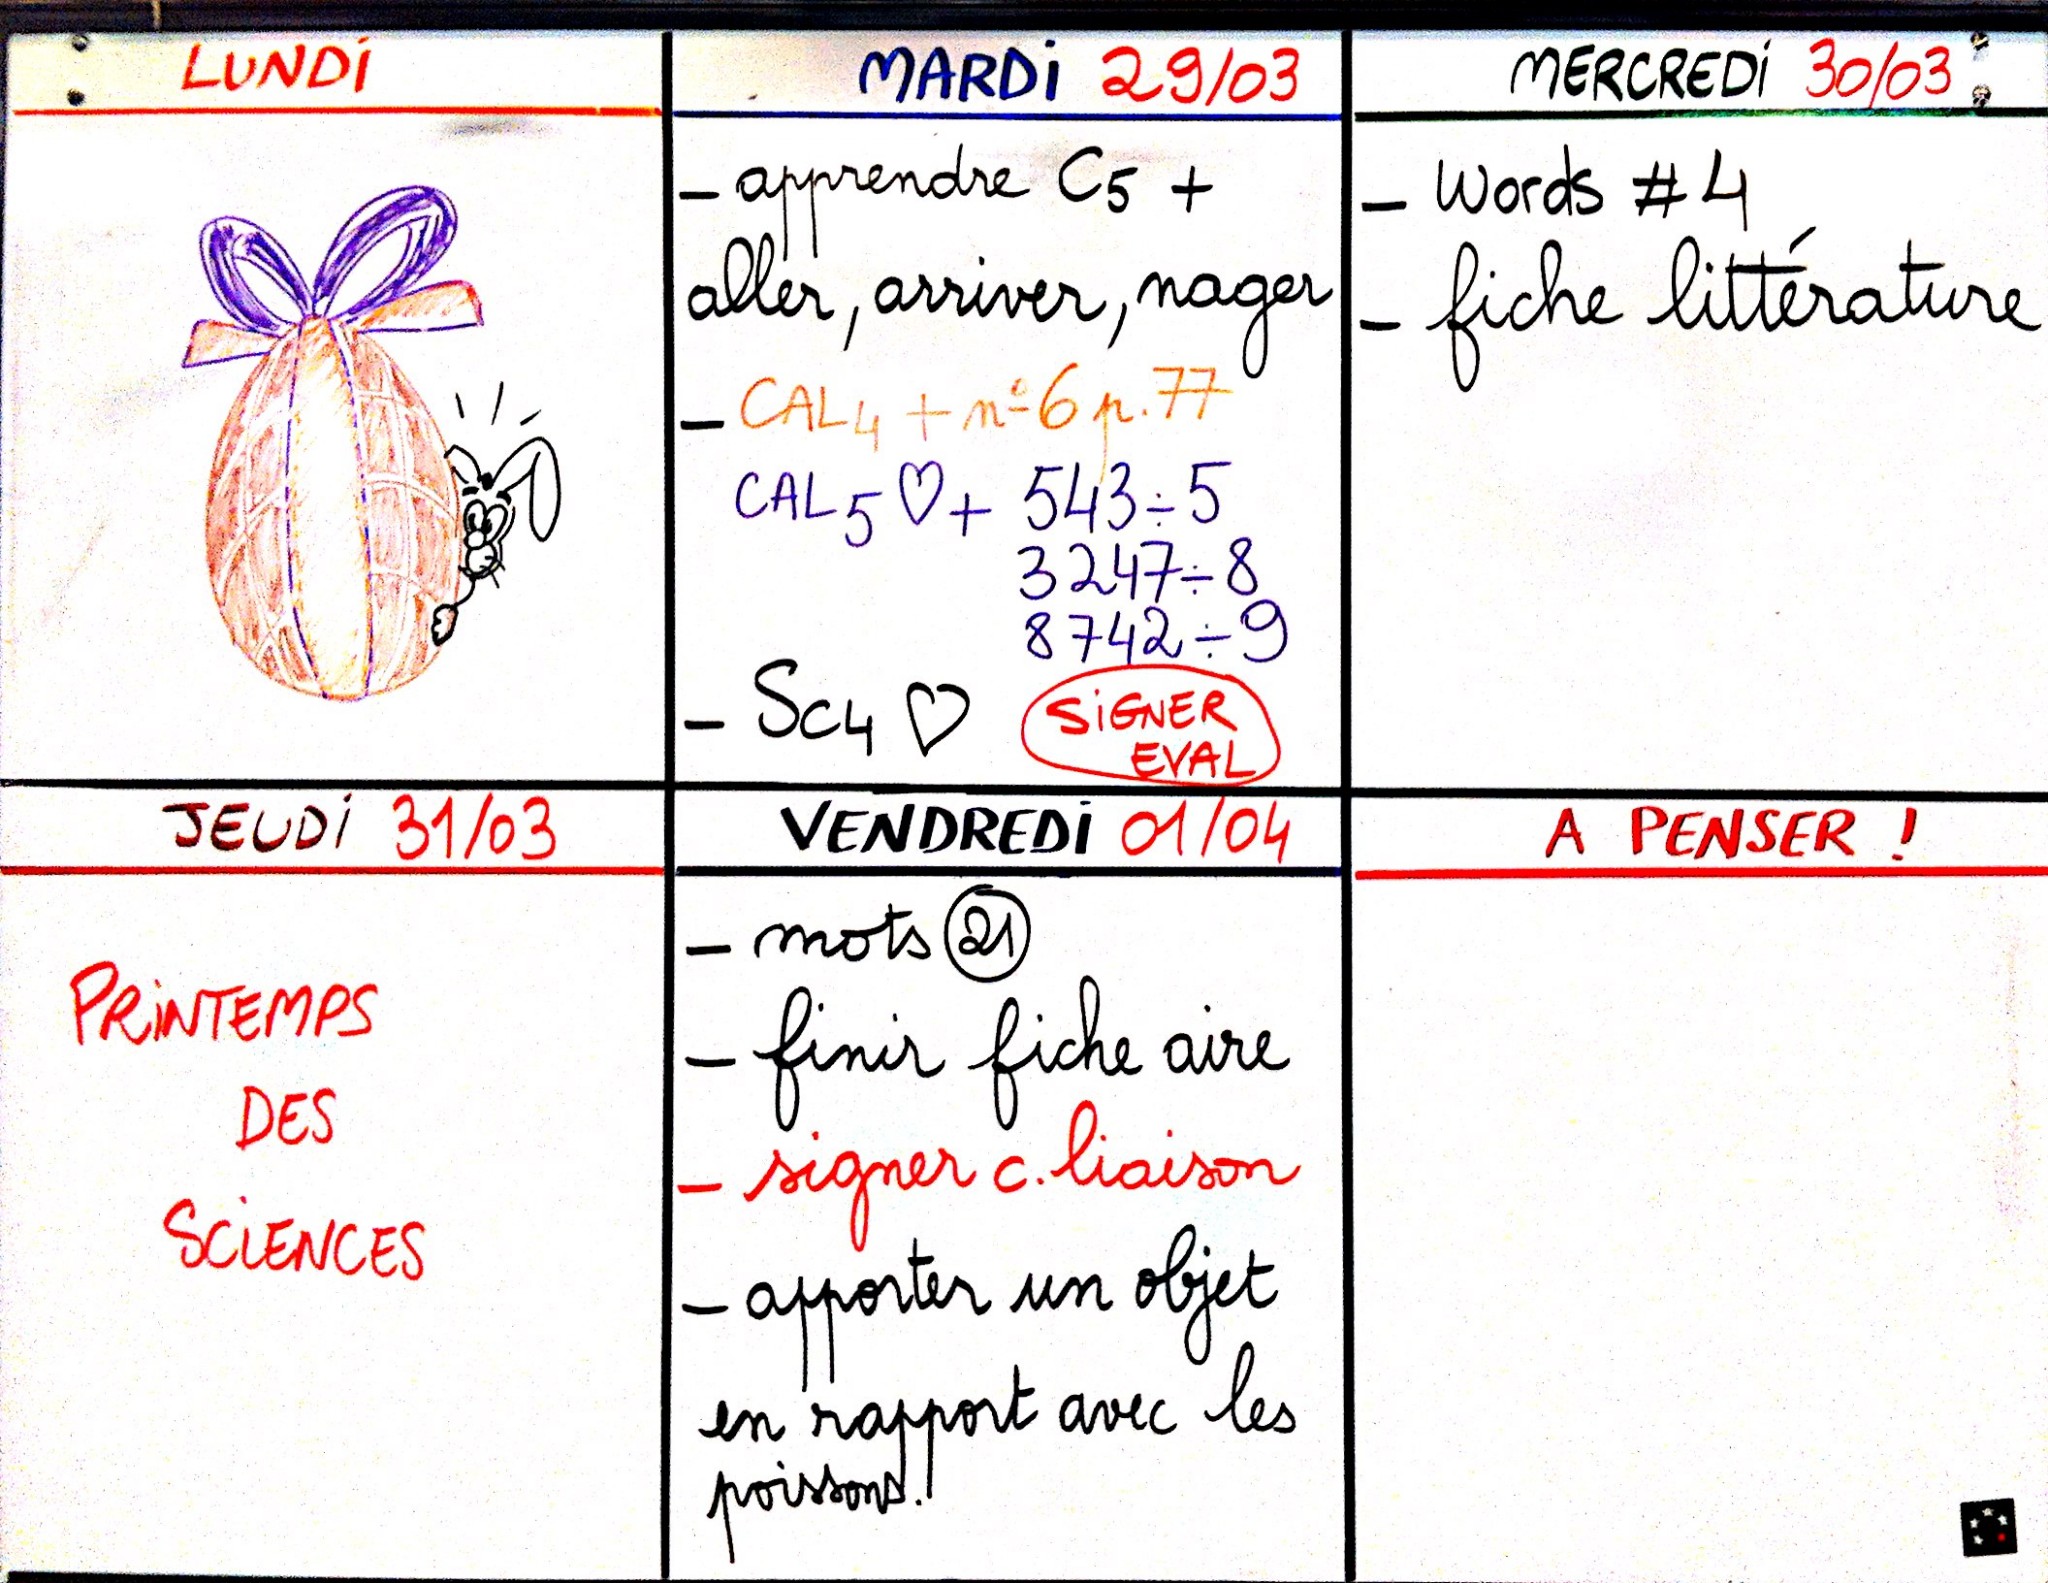 LUNDI
MARDI 29/03
- apprendre C5 +
aller, arriver, nager
- CAL4 + n°6 p.77
CAL5 ♡ + 543÷5
3247÷8
8742÷9
- Sc4 ♡
SIGNER
EVAL
MERCREDI 30/03
- Words #4
- fiche littérature
JEUDI 31/03
PRINTEMPS
DES
SCIENCES
VENDREDI 01/04
- mots 21
- finir fiche aire
- signer c. liaison
- apporter un objet
en rapport avec les
poissons.
A PENSER !